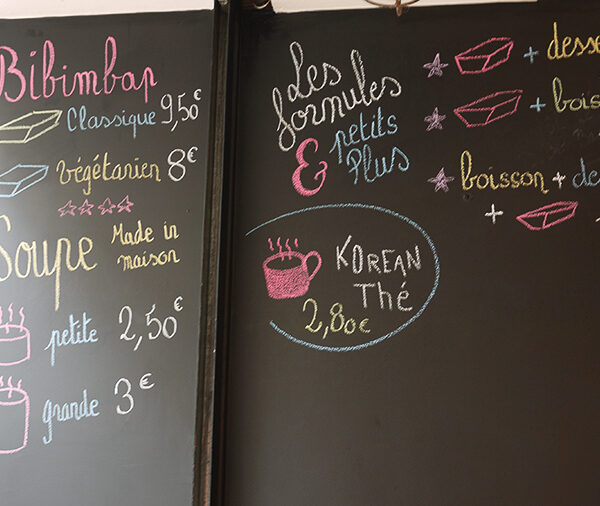 Bibimbap
Classique 9,50€
végétarien 8€
Soupe Made in
maison
petite 2,50€
grande 3€
Les
formules
& petits
Plus
+ desse
+ bois
boisson + de
+
KOREAN
Thé
2,80€